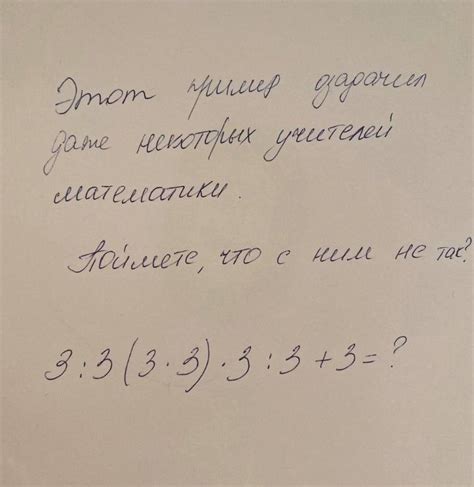 Этот пример озадачил
даже некоторых учителей
математики.
Поймете, что с ним не так?
3:3(3·3)·3:3+3=?